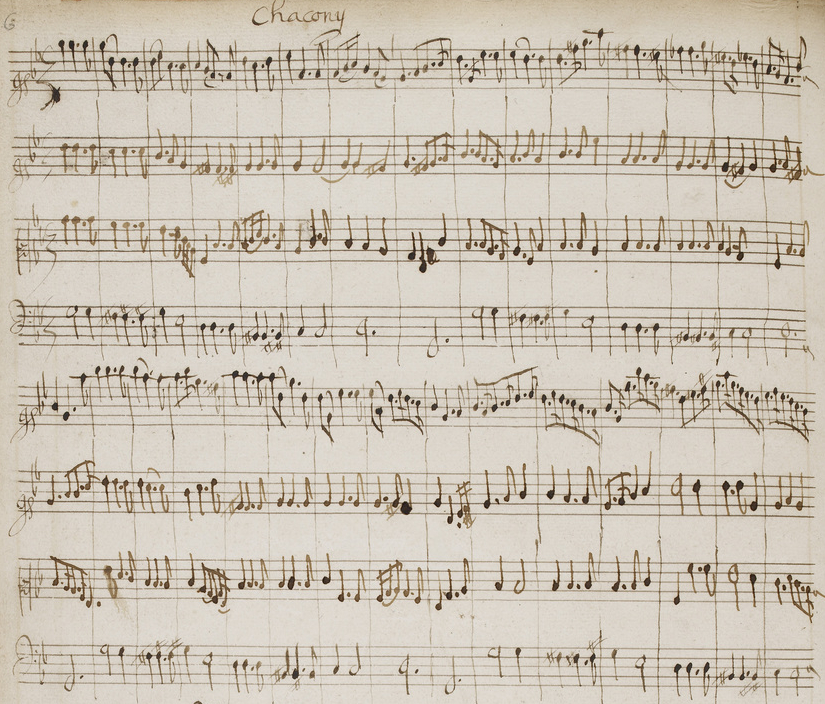 6
Chacony